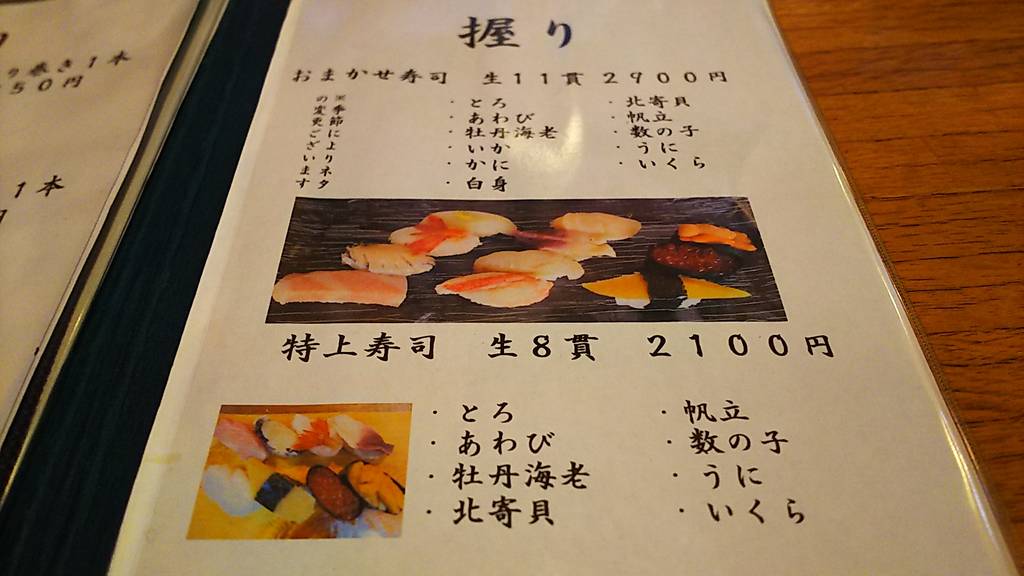 り巻き１本
５０円
１本
円
握り
おまかせ寿司　生１１貫 ２９００円
※季節によりネタ
の変更ございます
・とろ
・あわび
・牡丹海老
・いか
・かに
・白身
・北寄貝
・帆立
・数の子
・うに
・いくら
特上寿司　生８貫　２１００円
・とろ
・あわび
・牡丹海老
・北寄貝
・帆立
・数の子
・うに
・いくら